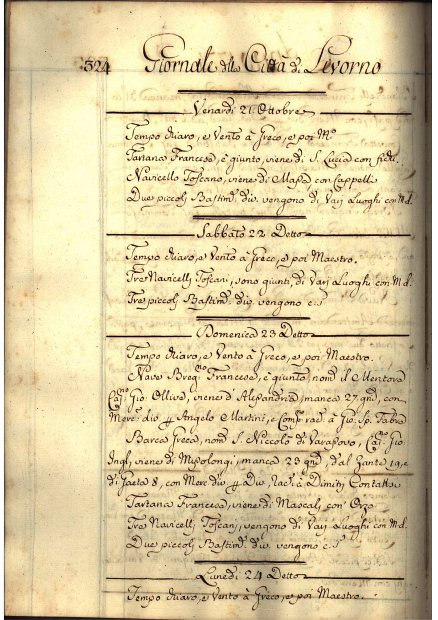 324 Giornale della Città di Livorno
Venardi 21 Ottobre
Tempo chiaro, e Vento à Greco, e poi M.º
Tartana Francesa, è giunto, viene di S. Lucia con fichi.
Navicello Toscano, viene di Massa con Cappelli
Due piccoli Bastim.ti div. vengono di Varj Luoghi con M.d.
Sabbato 22 Detto
Tempo chiaro, e Vento à Greco, e poi Maestro.
Tre Navicelli Toscani, sono giunti, di Varj Luoghi con M.d.
Tre piccoli Bastim.ti div. vengono c.s.
Domenica 23 Detto
Tempo chiaro, e Vento à Greco, e poi Maestro.
Nave Francese, è giunto, nom. il Mentore
Cap.no Gio. Ollive, viene d'Alesandria, manca 27 gni, con
Merc. div. p Angelo Martini, e Comp. rac. à Gio. Sp.
Barca Greca, nom. S. Niccolò di Cap.no Gio.
viene di Misolongi, manca 23 gni, dal Zante 19, e
di Gaeta 8, con Merc. div. p Div. rac. à Dimitri
Tartana Francesa, viene di Mascali con Orzo
Tre Navicelli Toscani, vengono di Varj Luoghi con M.d.
Due piccoli Bastim.ti div. vengono c.s.
Lunedi 24 Detto
Tempo chiaro, e Vento à Greco, e poi Maestro.